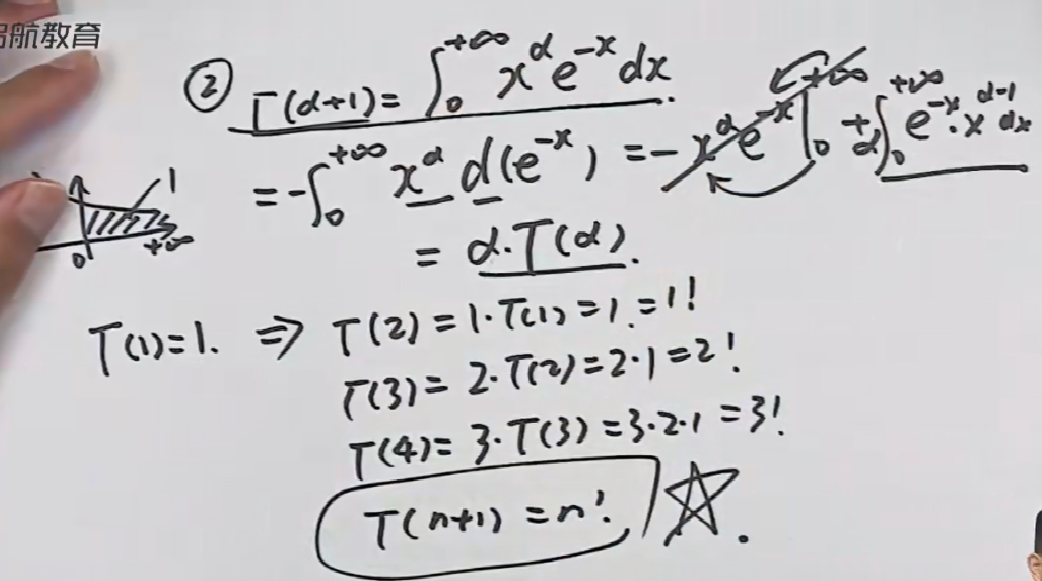 启航教育
② Γ(α+1)= ∫₀^{+∞} x^α e^{-x} dx.
= -∫₀^{+∞} x^α d(e^{-x}) = -x^α e^{-x} |₀^{+∞} + α∫₀^{+∞} e^{-x}·x^{α-1} dx
1
0 +∞
= α·Γ(α).
Γ(1)=1. ⇒ Γ(2) = 1·Γ(1) = 1. = 1!
Γ(3) = 2·Γ(2) = 2·1 = 2!
Γ(4) = 3·Γ(3) = 3·2·1 = 3!
Γ(n+1) = n!